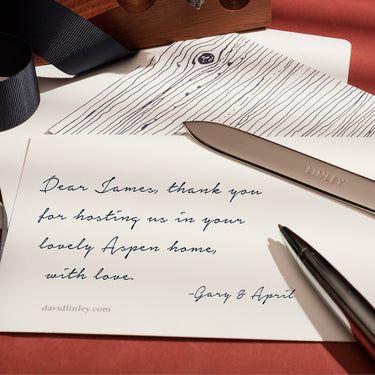 LINLEY
Dear James, thank you
for hosting us in your
lovely Aspen home,
with love.
-Gary & April
davidlinley.com